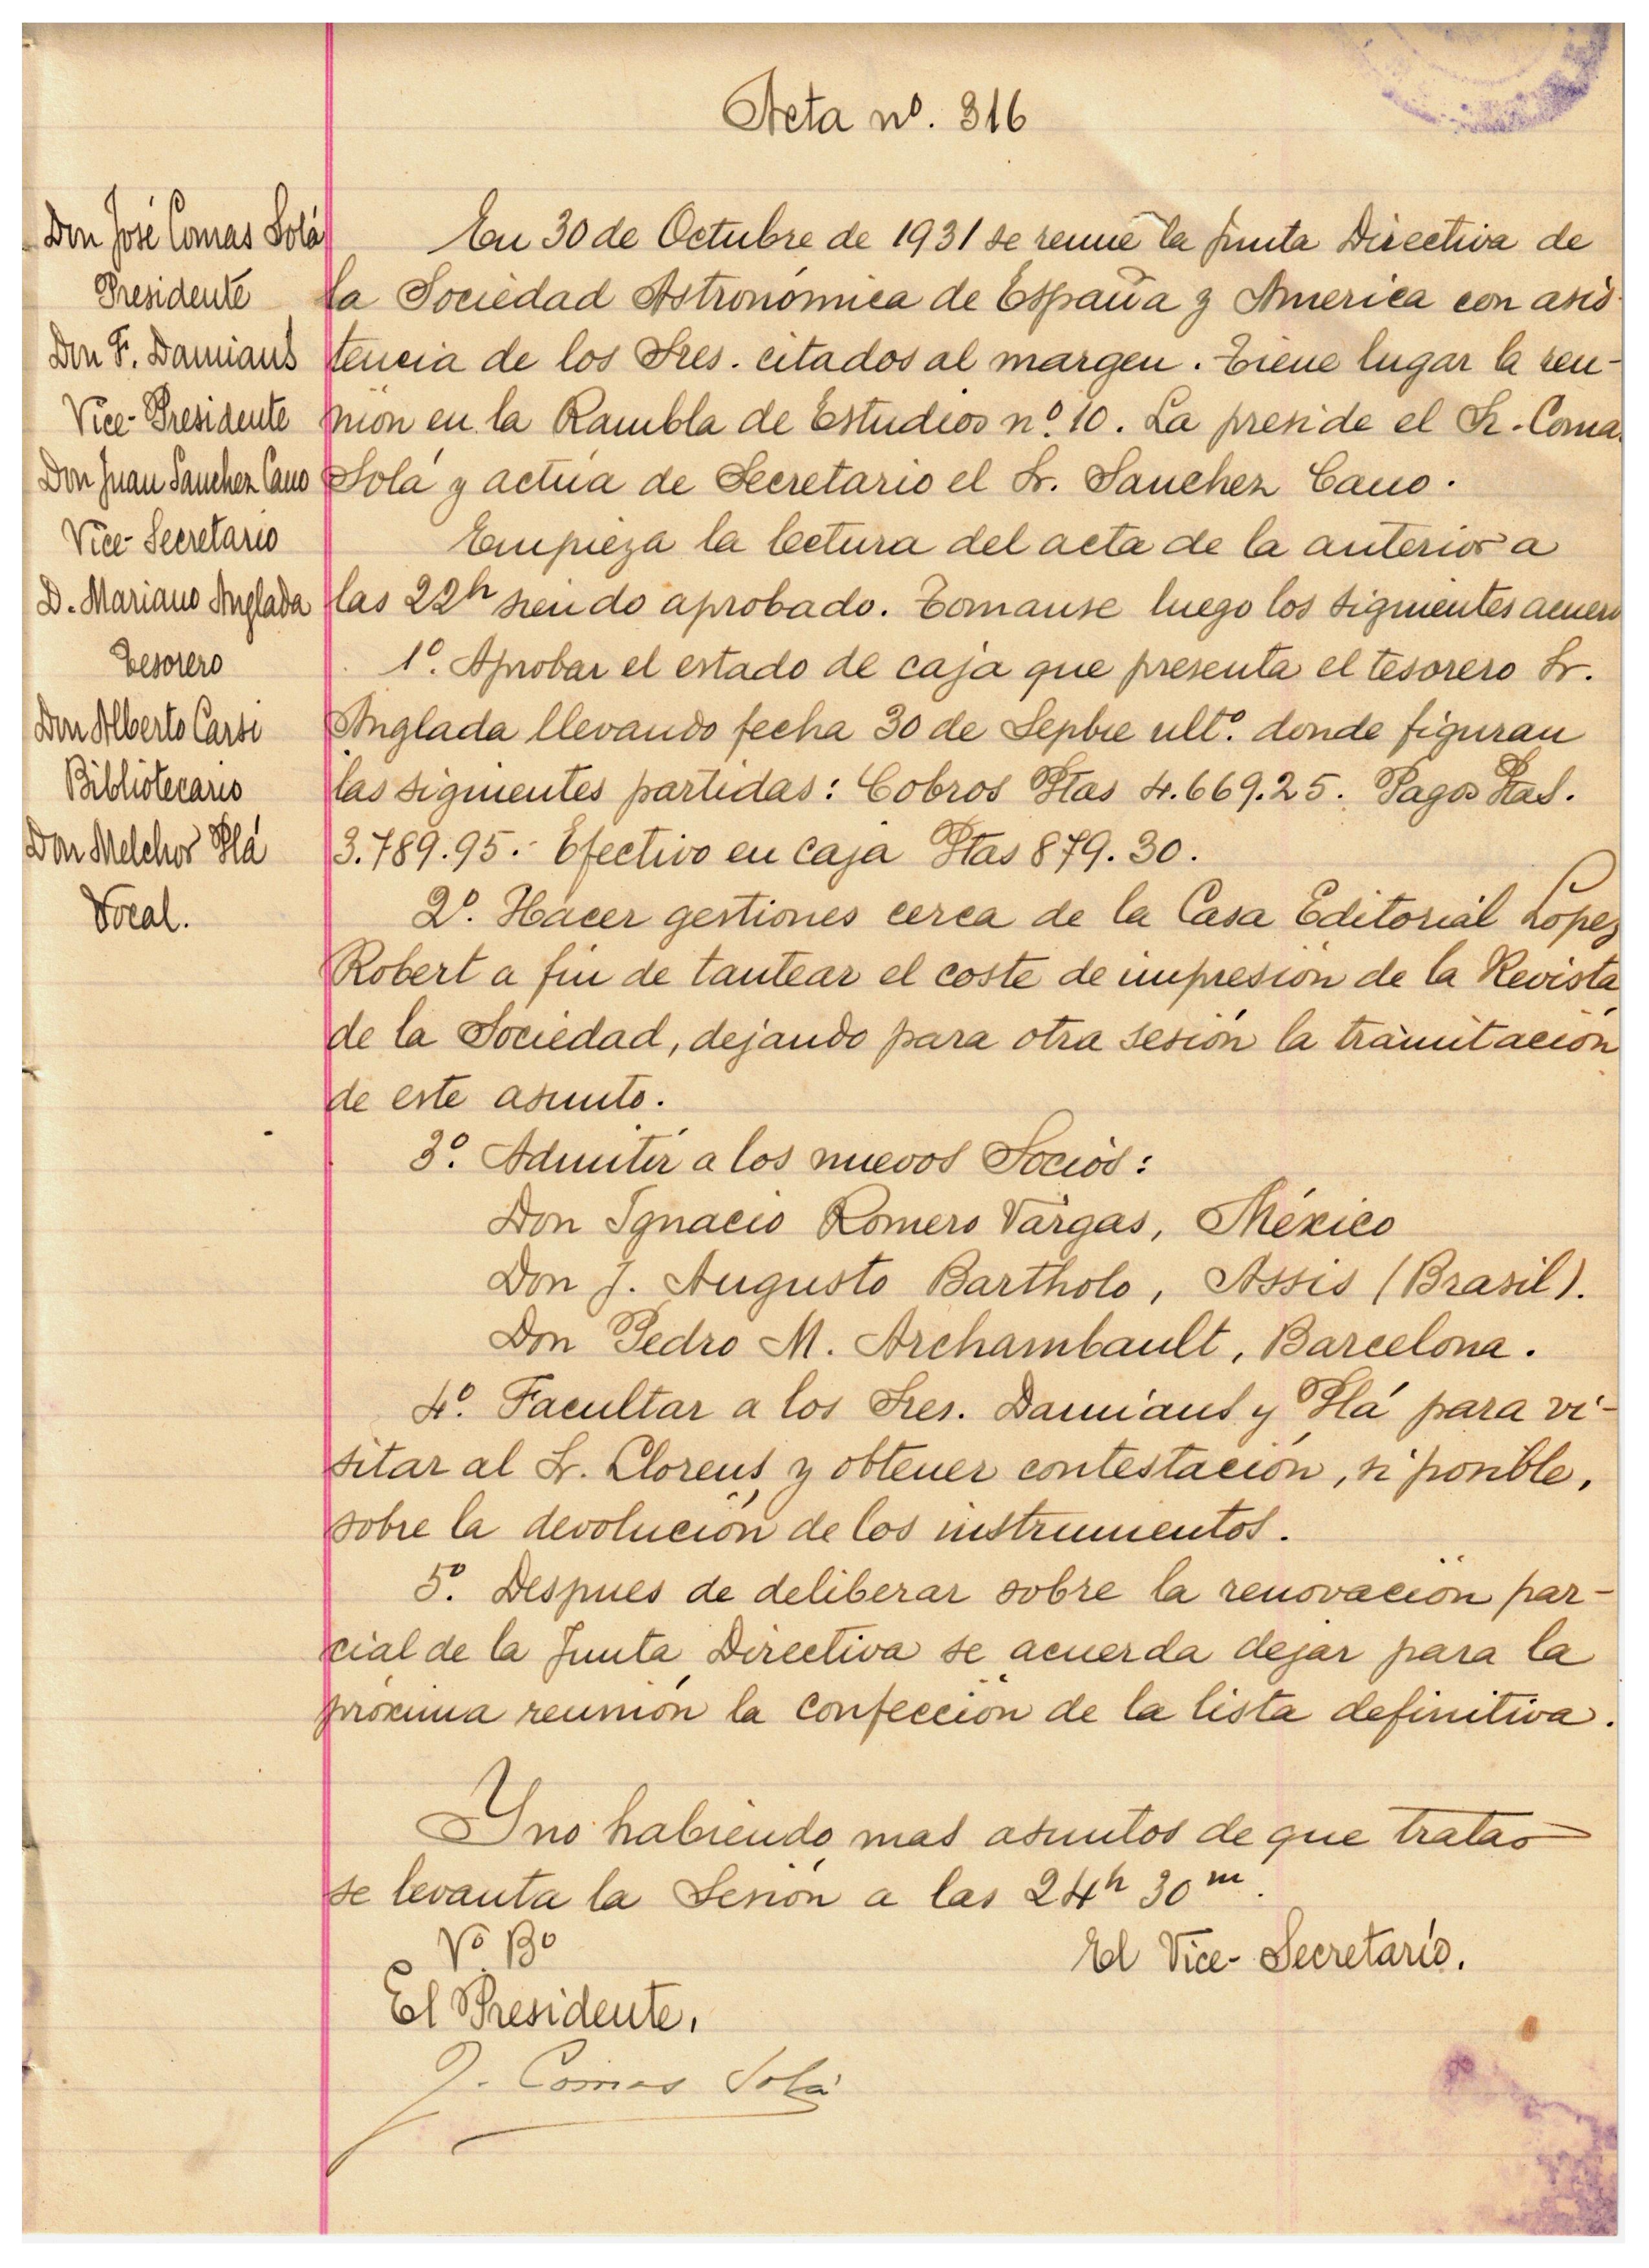 Acta nº. 316
Don José Comas Solá
Presidente
Don F. Damians
Vice-Presidente
Don Juan Sanchez Cano
Vice-Secretario
D. Mariano Anglada
Tesorero
Don Alberto Carsi
Bibliotecario
Don Melchor Plá
Vocal.
En 30 de Octubre de 1931 se reune la Junta Directiva de
la Sociedad Astronómica de España y America con asis-
tencia de los Sres. citados al margen. Tiene lugar la reu-
nión en la Rambla de Estudios nº 10. La preside el Sr. Comas
Solá y actúa de Secretario el Sr. Sanchez Cano.
Empieza la lectura del acta de la anterior a
las 22h siendo aprobado. Tomanse luego los siguientes acuerd
1º. Aprobar el estado de caja que presenta el tesorero Sr.
Anglada llevando fecha 30 de Sepbre ultº. donde figuran
las siguientes partidas: Cobros Ptas 4.669.25. Pagos Ptas.
3.789.95.- Efectivo en caja Ptas 879.30.
2º. Hacer gestiones cerca de la Casa Editorial López
Robert a fin de tantear el coste de impresión de la Revista
de la Sociedad, dejando para otra sesión la tramitación
de este asunto.
3º. Admitir a los nuevos Socios:
Don Ignacio Romero Vargas, México
Don J. Augusto Bartholo, Assis (Brasil).
Don Pedro M. Archambault, Barcelona.
4º. Facultar a los Sres. Damians y Plá para vi-
sitar al Sr. Llorens y obtener contestación, si posible,
sobre la devolución de los instrumentos.
5º. Despues de deliberar sobre la renovación par-
cial de la Junta Directiva se acuerda dejar para la
próxima reunión la confección de la lista definitiva.
Y no habiendo mas asuntos de que tratar
se levanta la Sesión a las 24h 30m.
Vº Bº
El Presidente,
El Vice-Secretario.
J. Comas Solá